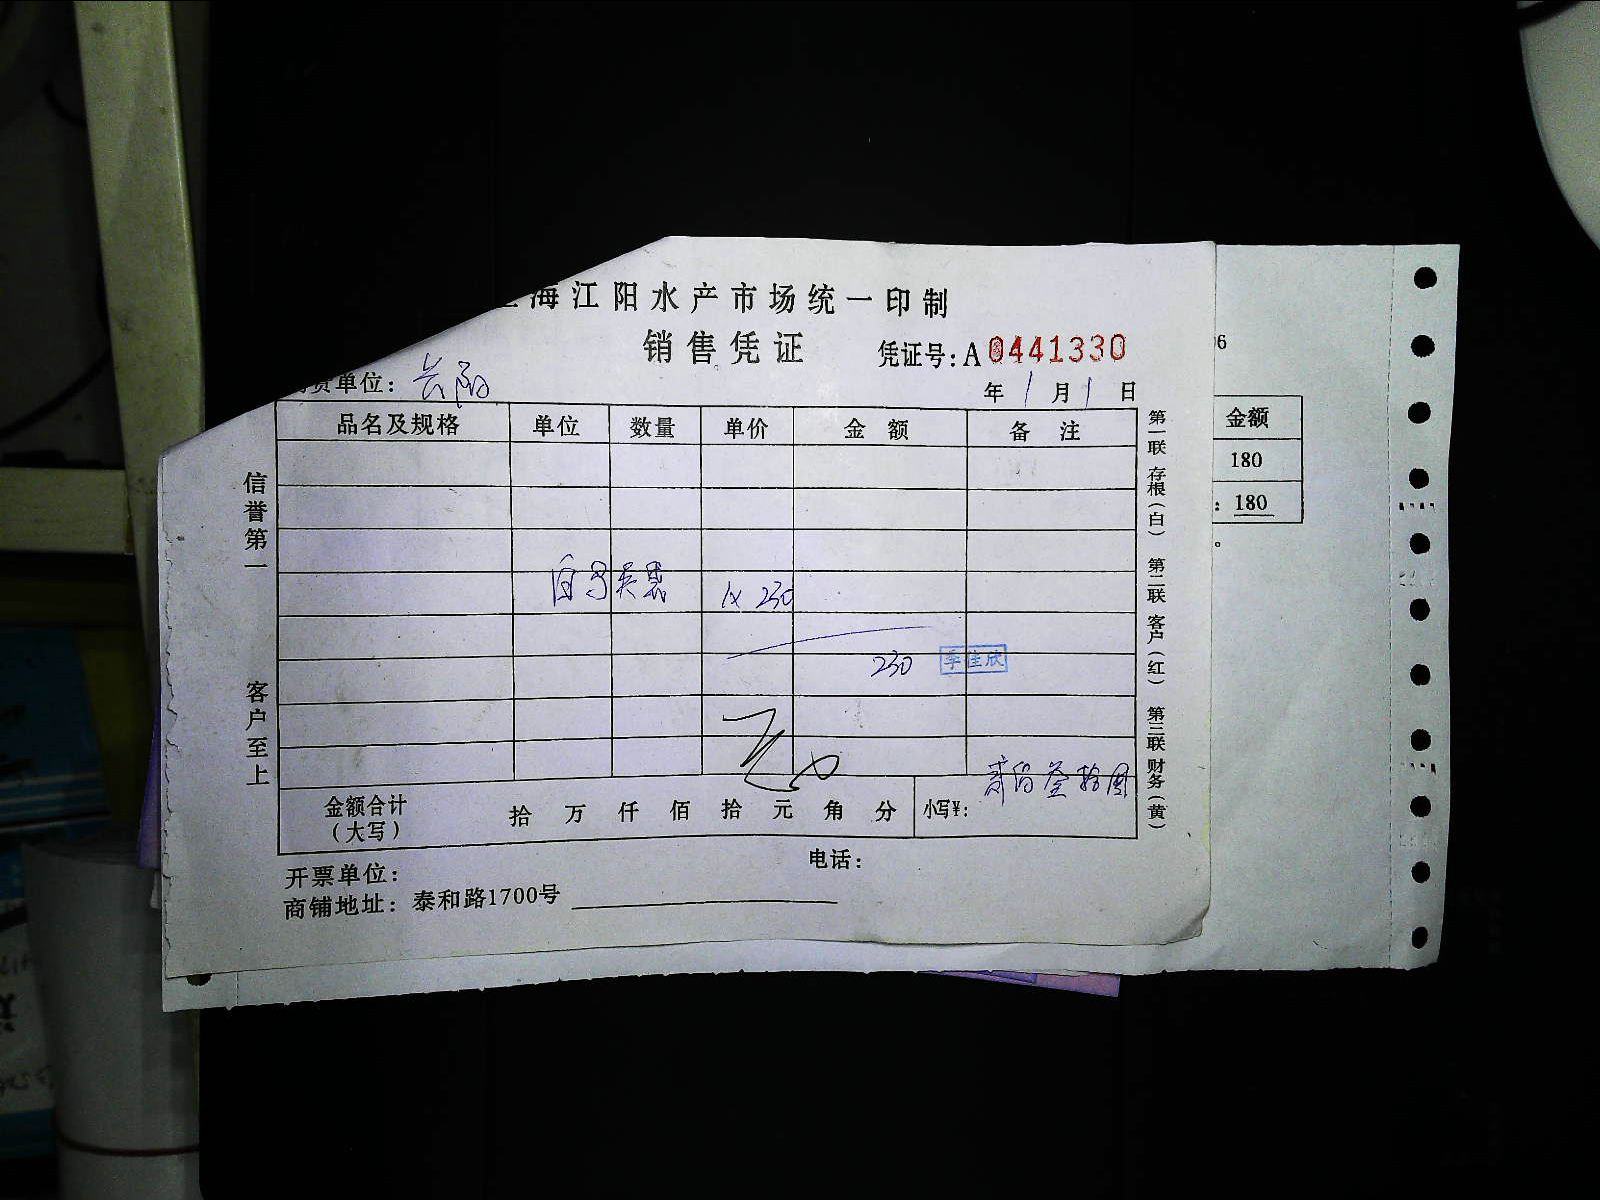 海江阳水产市场统一印制
销售凭证
凭证号:A 0441330
货单位: 长阳
年 1 月 1 日
品名及规格 单位 数量 单价 金 额 备 注
1X 230
230 季佳欣
贰佰叁拾圆
金额合计(大写) 拾 万 仟 佰 拾 元 角 分 小写¥:
开票单位: 电话:
商铺地址: 泰和路1700号
信誉第一 客户至上
第一联 存根(白) 第二联 客户(红) 第三联 财务(黄)
6
金额
180
: 180
。